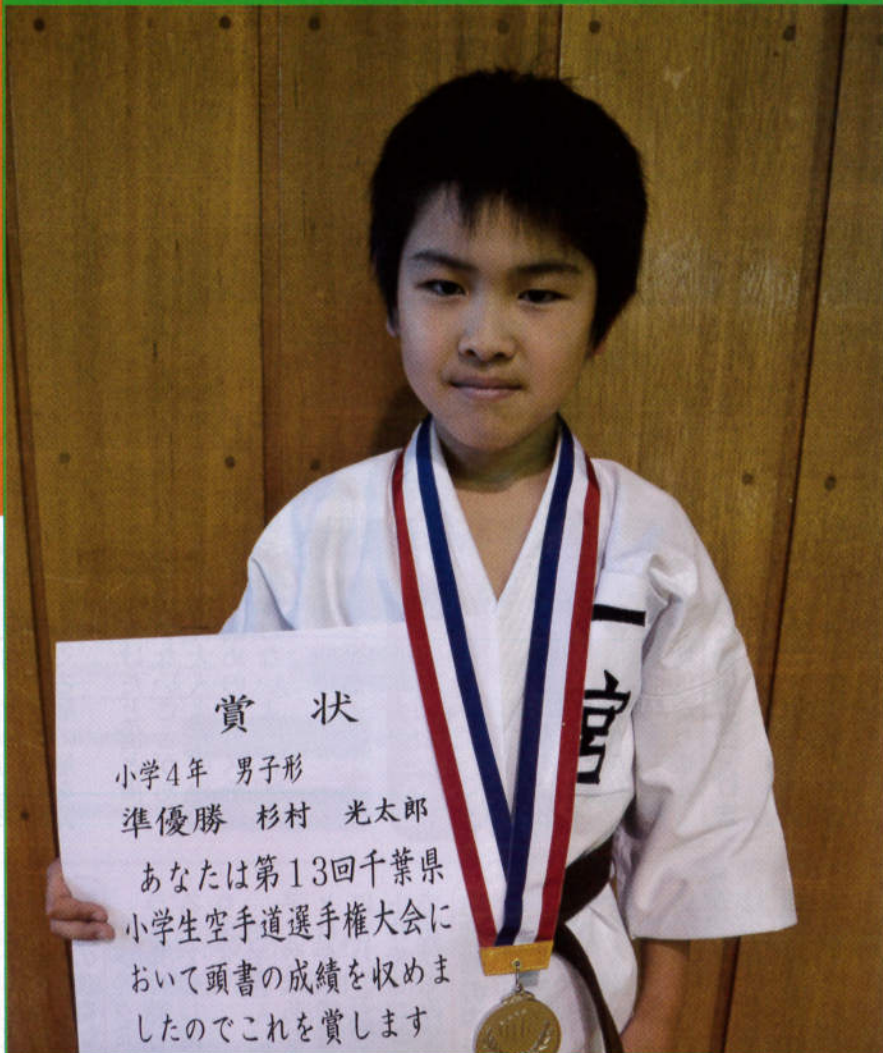 賞 状
小学4年 男子形
準優勝 杉村 光太郎
あなたは第13回千葉県
小学生空手道選手権大会に
おいて頭書の成績を収めま
したのでこれを賞します
一
宮